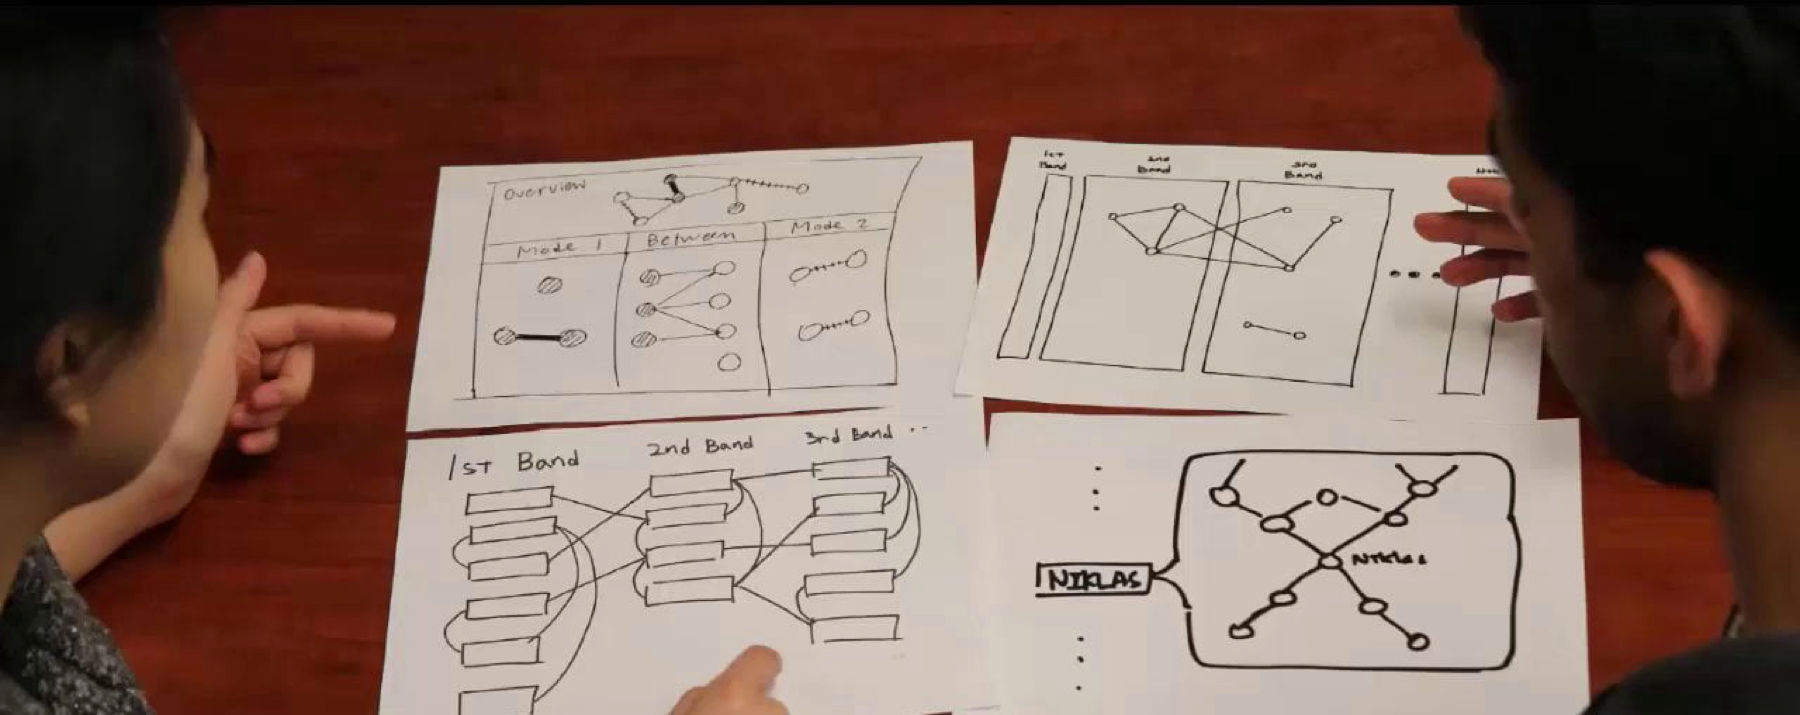 Overview
Mode 1
Between
Mode 2
1st Band
2nd Band
3rd Band
1st Band
2nd Band
3rd Band ..
NIKLAS
Niklas